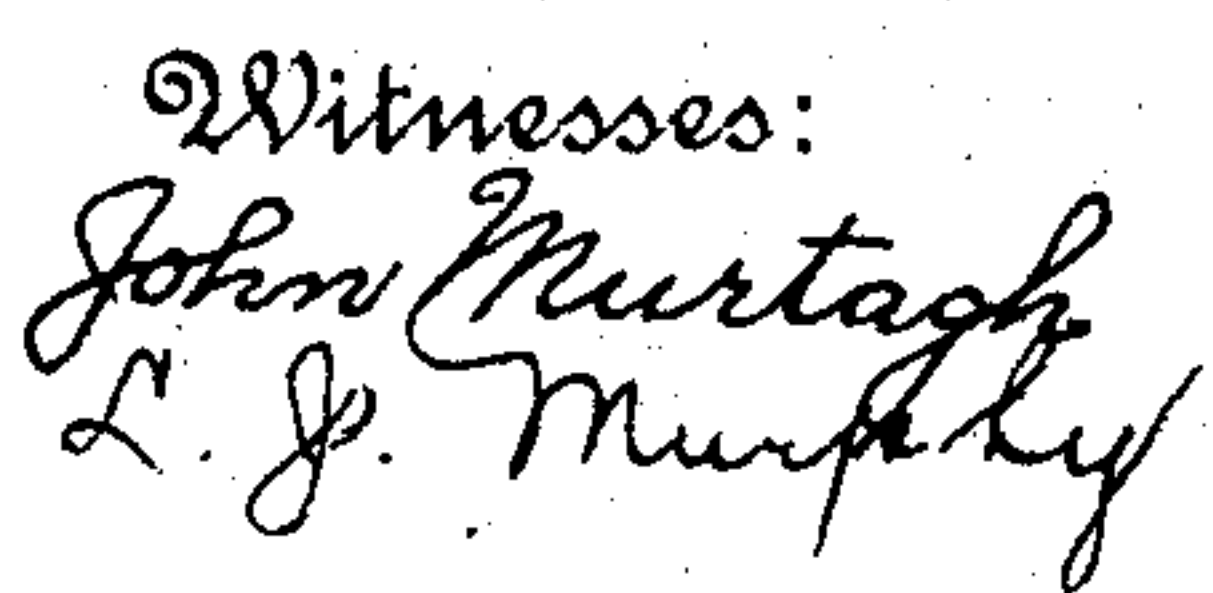 Witnesses:
John Murtagh
L. J. Murphy